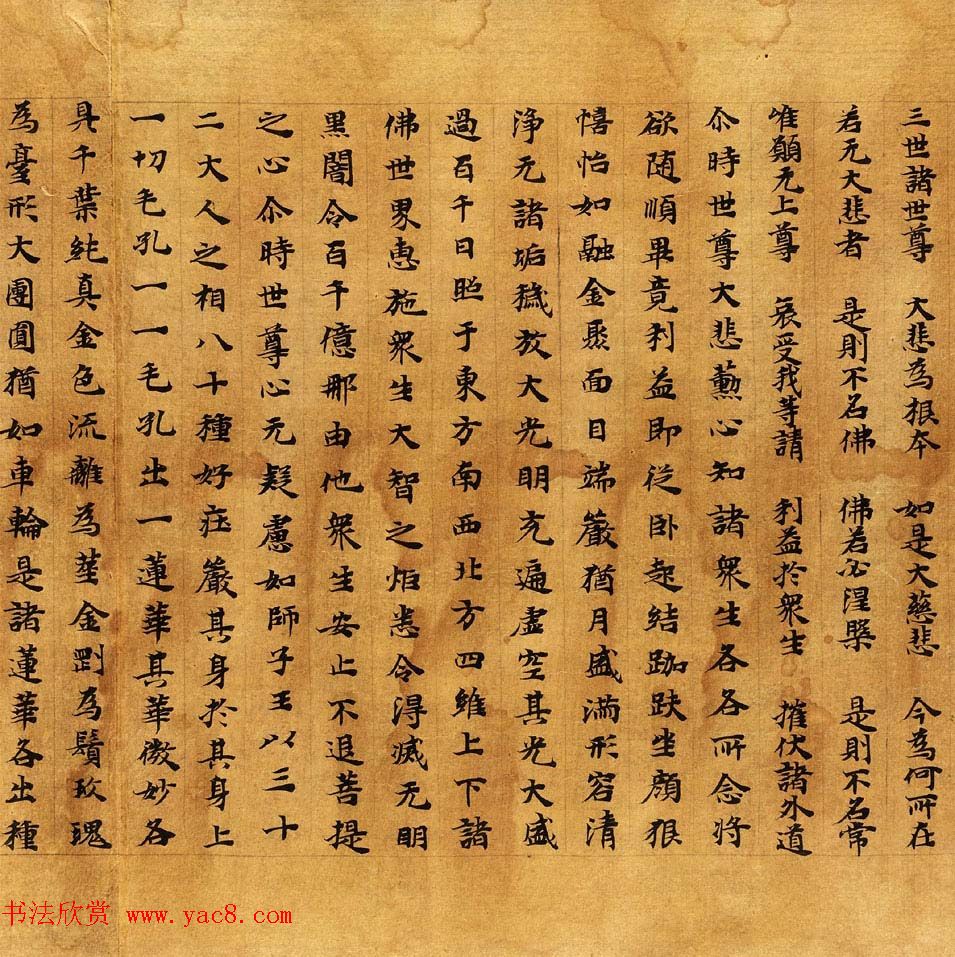 三世諸世尊 大悲為根本 如是大慈悲 今為何所在
若无大悲者 是則不名佛 佛若必涅槃 是則不名常
唯願无上尊 哀受我等請 利益於衆生 摧伏諸外道
尒時世尊大悲勳心知諸衆生各各所念將
欲随順畢竟利益即従卧起結跏趺坐顔狠
憘怡如融金聚面目端嚴猶月盛滿形容清
浄无諸垢穢放大光明充遍虚空其光大盛
過百千日照于東方南西北方四維上下諸
佛世界恵施衆生大智之炬悉令得滅无明
黒闇令百千億那由他衆生安止不退菩提
之心尒時世尊心无疑慮如師子王以三十
二大人之相八十種好莊嚴其身於其身上
一切毛孔一一毛孔出一蓮華其華微妙各
具千葉純真金色流離為莖金剛為鬚玫瑰
為臺形大團圓猶如車輪是諸蓮華各出種
书法欣赏 www.yac8.com